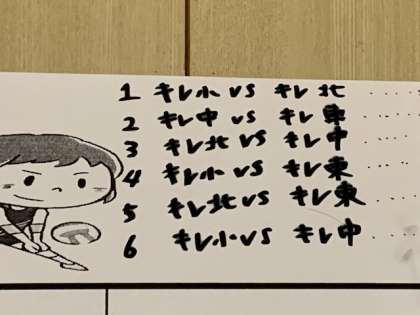 1 キレ小 VS キレ北 ......
2 キレ中 VS キレ東 ....
3 キレ北 VS キレ中 ....
4 キレ小 VS キレ東 ....
5 キレ北 VS キレ東 ....
6 キレ小 VS キレ中 ....